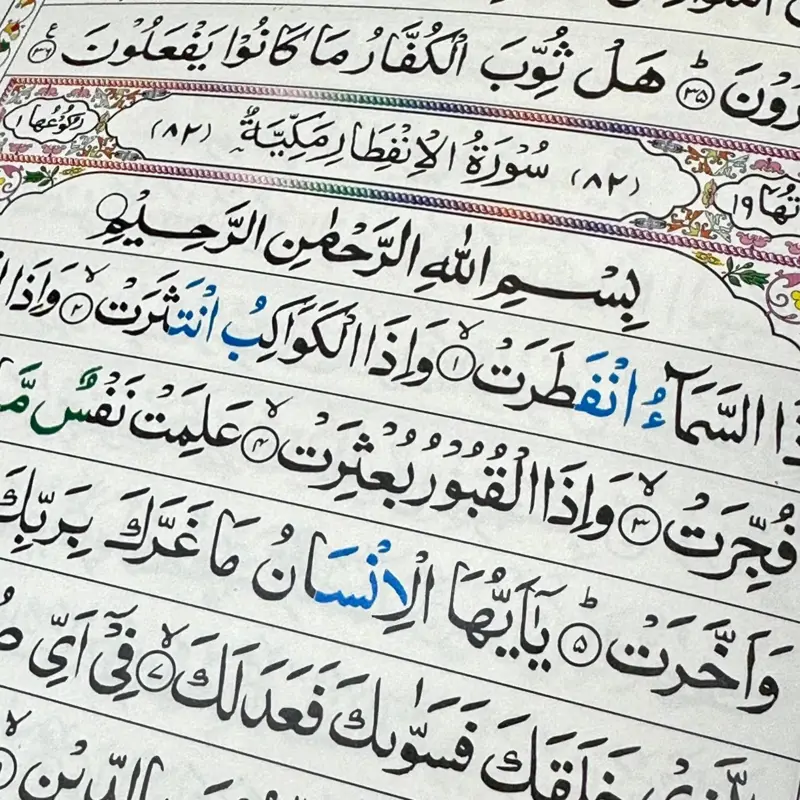 رُوْنَ ﴿۳۵﴾ هَلْ ثُوِّبَ الْكُفَّارُ مَا كَانُوْا يَفْعَلُوْنَ ﴿۳۶﴾
تُهَا ۱۹ (۸۲) سُوْرَةُ الْاِنْفِطَارِ مَكِّيَّةٌ (۸۲) رُكُوْعُهَا ۱
بِسْمِ اللّٰهِ الرَّحْمٰنِ الرَّحِيْمِ
ذَا السَّمَآءُ انْفَطَرَتْ ﴿۱﴾ وَاِذَا الْكَوَاكِبُ انْتَثَرَتْ ﴿۲﴾ وَاِذَا
فُجِّرَتْ ﴿۳﴾ وَاِذَا الْقُبُوْرُ بُعْثِرَتْ ﴿۴﴾ عَلِمَتْ نَفْسٌ مَّا
وَاَخَّرَتْ ﴿۵﴾ يٰۤاَيُّهَا الْاِنْسَانُ مَا غَرَّكَ بِرَبِّكَ
خَلَقَكَ فَسَوّٰىكَ فَعَدَلَكَ ﴿۷﴾ فِيْۤ اَيِّ
بِالدِّيْنِ